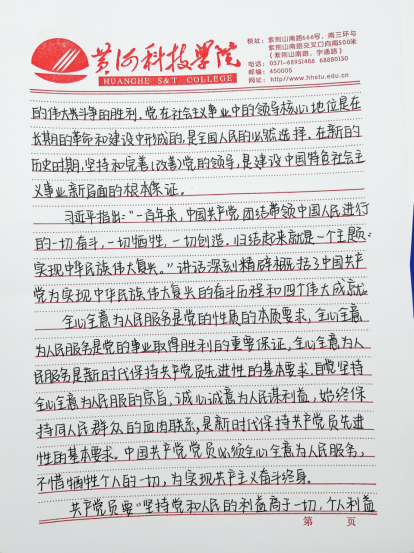 黄河科技学院
HUANGHE S&T COLLEGE
校址：紫荆山南路666号，南三环与
紫荆山南路交叉口向南500米
（紫荆山南路，宇通路）
电话：0371-68951486 68880130
邮编：450005
网址：http://www.hhstu.edu.cn
的伟大斗争的胜利，党在社会主义事业中的领导核心地位是在
长期的革命和建设中形成的，是全国人民的必然选择。在新的
历史时期，坚持和完善（改善）党的领导，是建设中国特色社会主
义事业新局面的根本保证。
习近平指出：“一百年来，中国共产党团结带领中国人民进行
的一切奋斗，一切牺牲，一切创造，归结起来就是一个主题：
实现中华民族伟大复兴。”讲话深刻精辟概括了中国共产
党为实现中华民族伟大复兴的奋斗历程和四个伟大成就。
全心全意为人民服务是党的性质的本质要求，全心全意
为人民服务是党的事业取得胜利的重要保证，全心全意为人
民服务是新时代保持共产党员先进性的基本要求。自觉坚持
全心全意为人民服的宗旨，诚心诚意为人民谋利益，始终保
持同人民群众的血肉联系，是新时代保持共产党员先进
性的基本要求。中国共产党党员必须全心全意为人民服务，
不惜牺牲个人的一切，为实现共产主义奋斗终身。
共产党员要“坚持党和人民的利益高于一切，个人利益
第 页